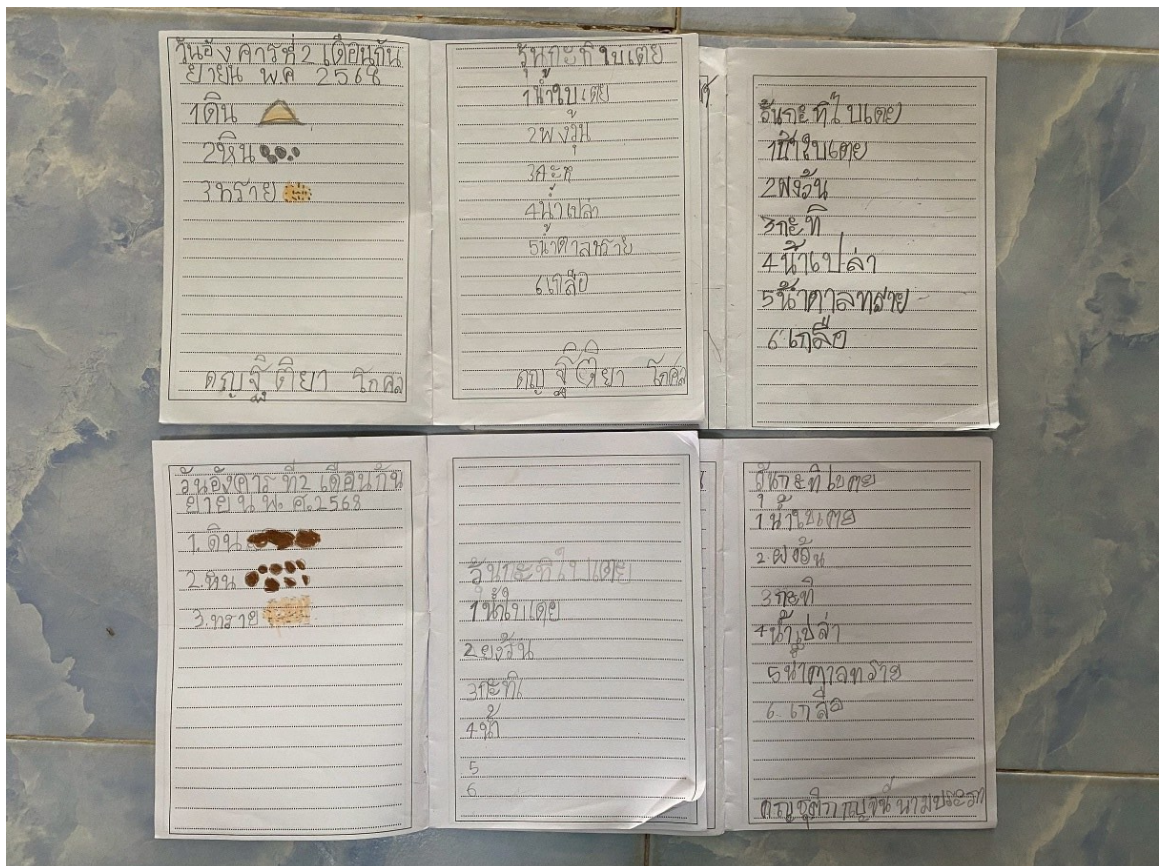 วันอังคารที่2 เดือนกัน
ยายน พ.ศ 2568
1ดิน
2หิน
3ทราย
ดญฐิติยา โกศล
วุ้นกะทิใบเตย
1น้ำใบเตย
2พงวุ้น
3กะท
4น้ำเปล่า
5น้ำตาลทราย
6เกลือ
ดญฐิติยา โกศล
วุ้นกะทิใบเตย
1น้ำใบเตย
2ผงวุ้น
3กะทิ
4น้ำเปล่า
5น้ำตาลทราย
6เกลือ
วันอังคารที่2 เดือนกัน
ยายน พ.ศ.2568
1.ดิน
2.หิน
3.ทราย
วุ้นกะทิใบเตย
1น้ำใบเตย
2ยงวุ้น
3กะทิเ
4น้ำ
5
6
วุ้นกะทิใบเตย
1น้ำใบเตย
2.ผงวุ้น
3กะทิ
4น้ำเปล่า
5น้ำตาลทราย
6.เกลือ
ดญชุติกาญจน์